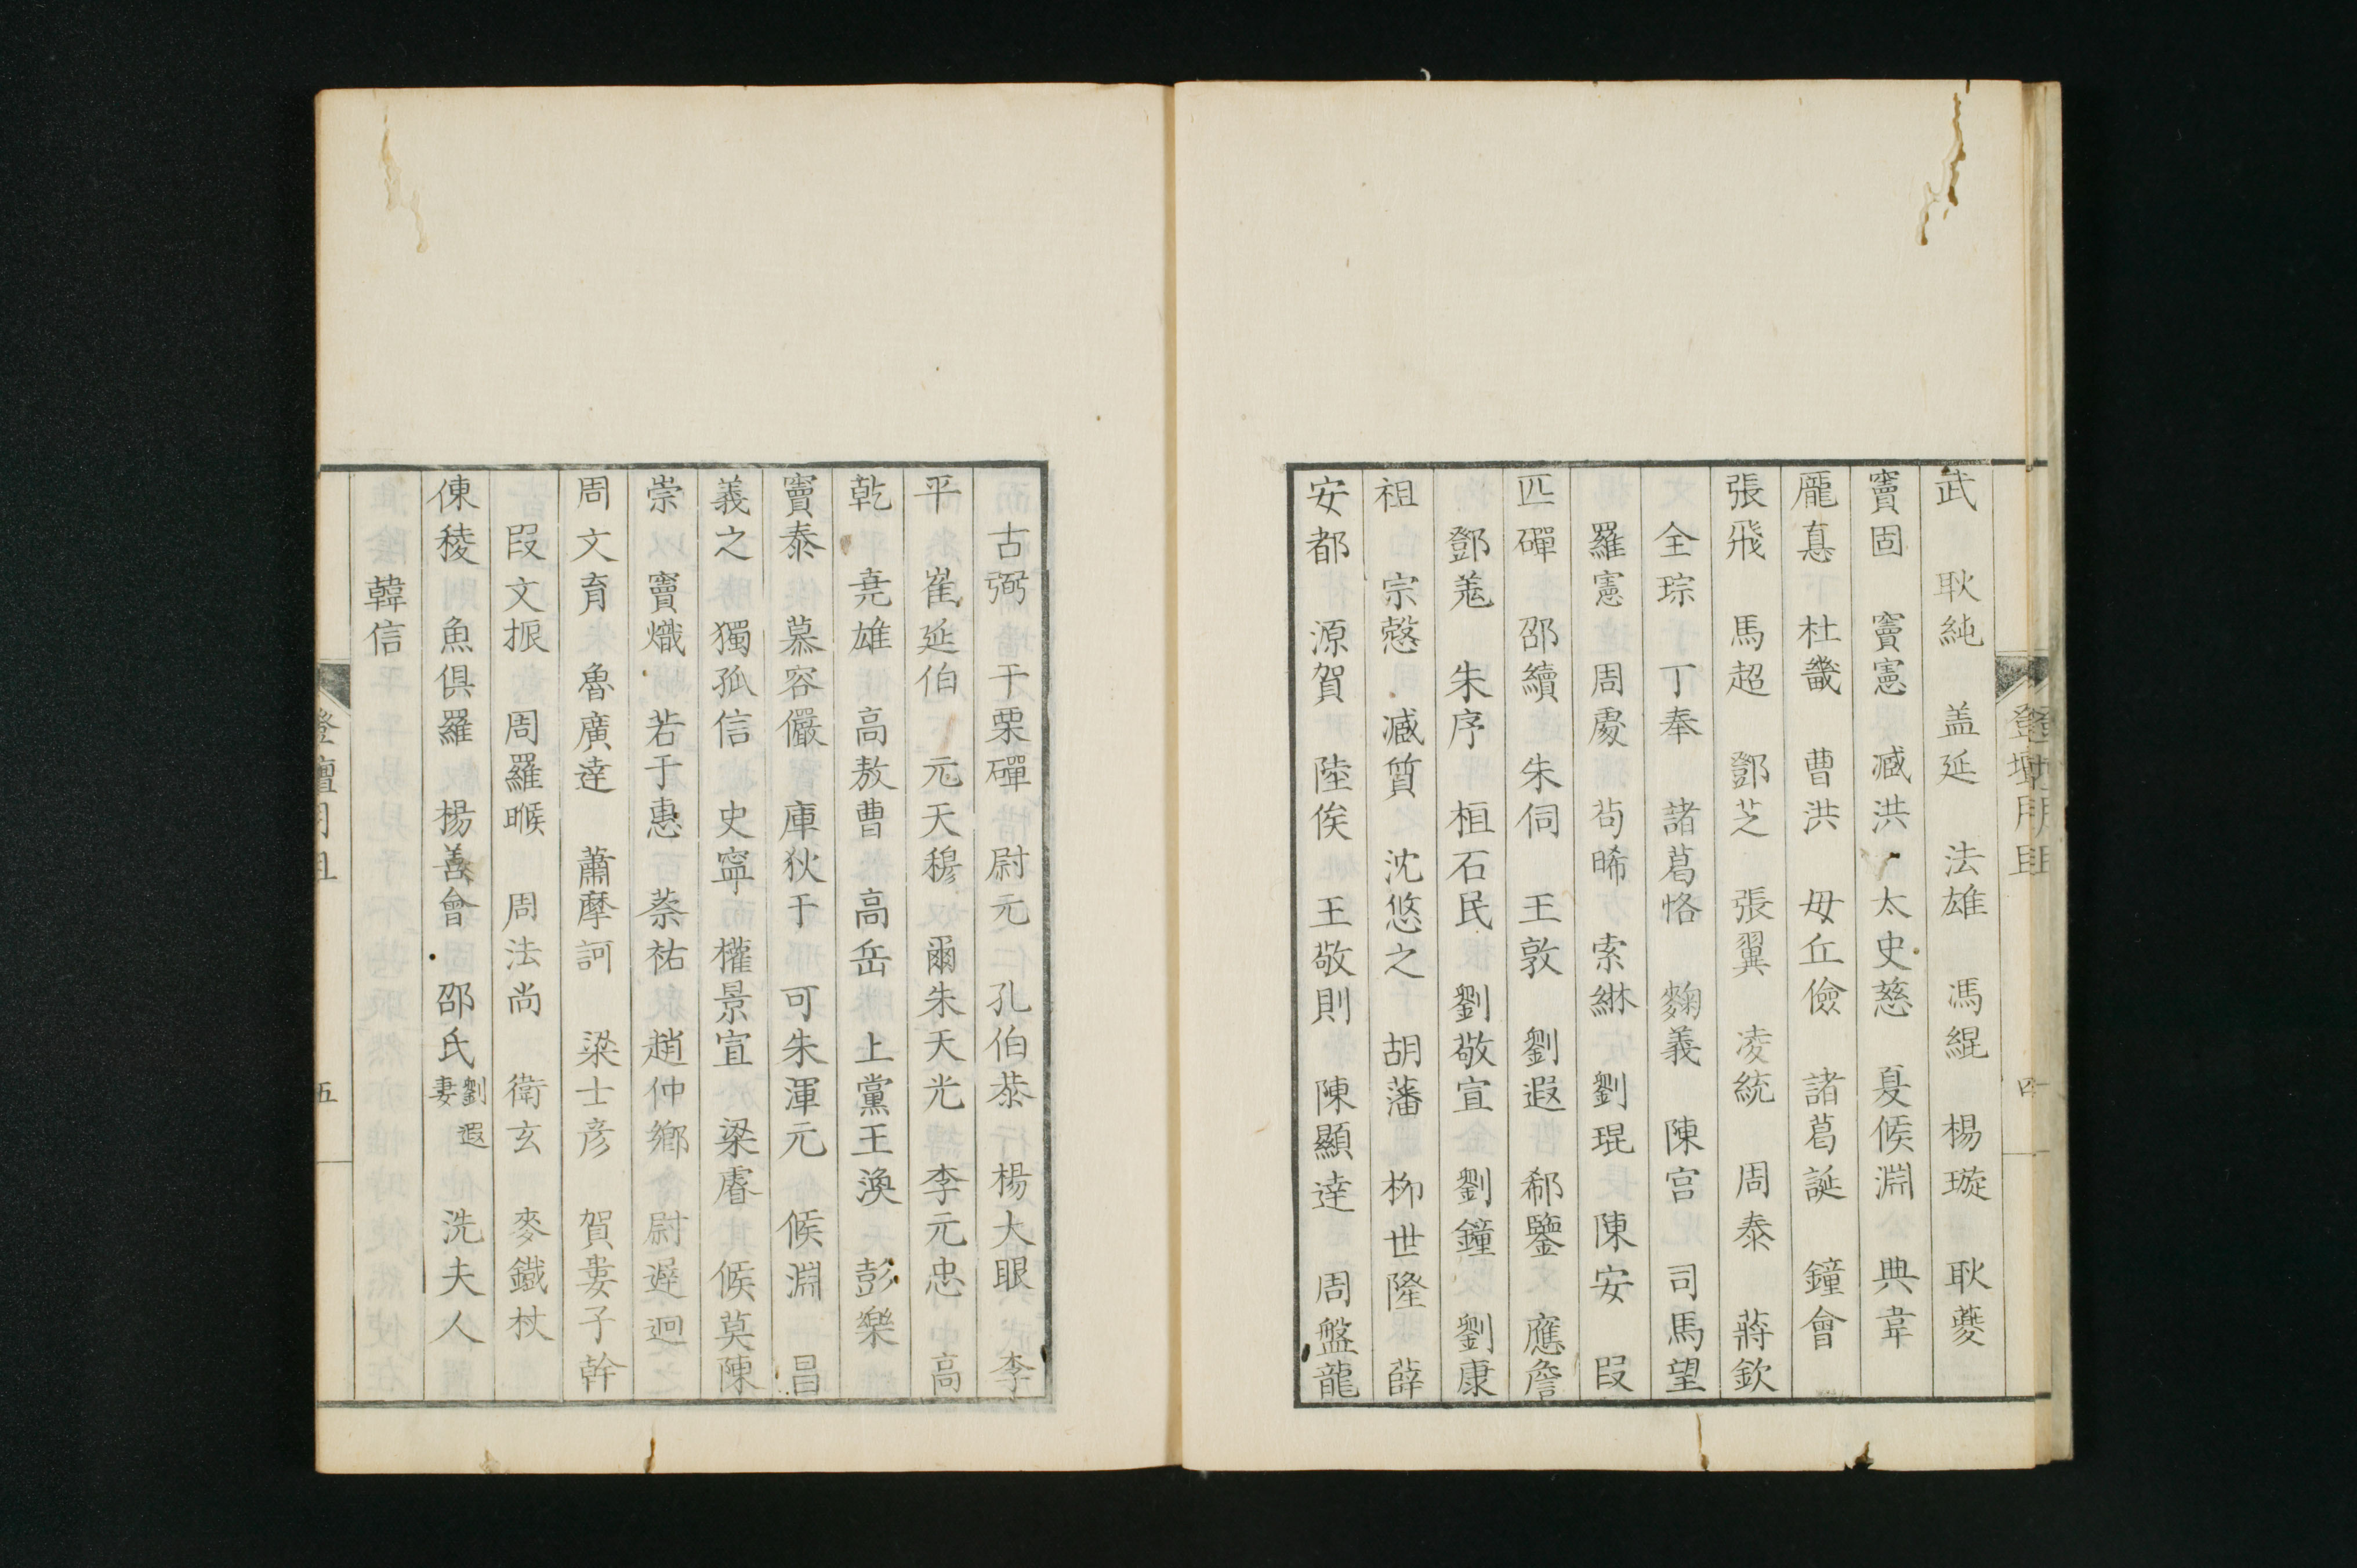 登壇用
四
武 耿純 盖延 法雄 馮緄 楊璇 耿夔
竇固 竇憲 臧洪 太史慈 夏候淵 典韋
龐悳 杜畿 曹洪 毋丘儉 諸葛誕 鐘會
張飛 馬超 鄧芝 張翼 凌統 周泰 蔣欽
全琮 丁奉 諸葛恪 麴義 陳宮 司馬望
羅憲 周處 茍晞 索綝 劉琨 陳安 叚
匹磾 邵續 朱伺 王敦 劉遐 郗鑒 應詹
鄧羗 朱序 桓石民 劉敬宣 劉鐘 劉康
祖 宗慤 臧質 沈悠之 胡藩 柳世隆 薛
安都 源賀 陸俟 王敬則 陳顯逹 周盤龍
古弼 干栗磾 尉元 孔伯恭 楊大眼 李
平 崔延伯 元天穆 爾朱天光 李元忠 高
乾 尭雄 高敖曹 高岳 上黨王渙 彭樂
竇泰 慕容儼 庫狄于 可朱渾元 候淵 昌
義之 獨孤信 史寧 權景宣 梁睿 候莫陳
崇 竇熾 若于惠 蔡祐 趙仲鄉 尉遲迥
周文育 魯廣逹 蕭摩訶 梁士彦 賀婁子幹
叚文振 周羅睺 周法尚 衛玄 麥鐵杖
陳稜 魚俱羅 楊善會 邵氏劉遐妻 洗夫人
韓信
登壇
五